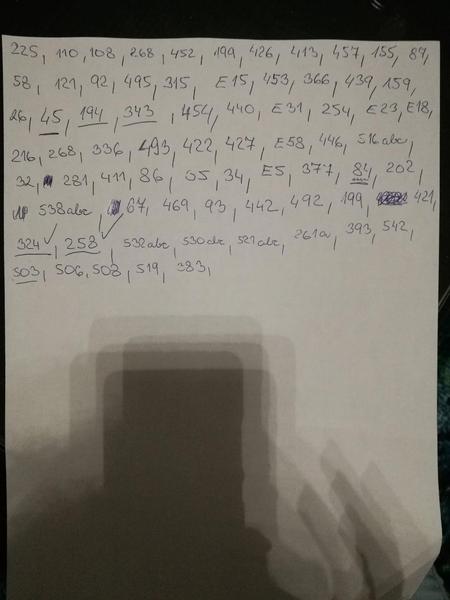 225, 110, 108, 268, 452, 199, 426, 413, 457, 155, 87,
58, 121, 92, 495, 315, E15, 453, 366, 439, 159,
26, 45, 194, 343, 454, 440, E31, 254, E23, E18,
216, 268, 336, 493, 422, 427, E58, 446, 516abc,
32, 281, 411, 86, 34, E5, 377, 84, 202,
538abc, 67, 469, 93, 442, 492, 199, 421,
324, 258, 532abc, 530abc, 527abc, 261a, 393, 542,
503, 506, 508, 519, 383,